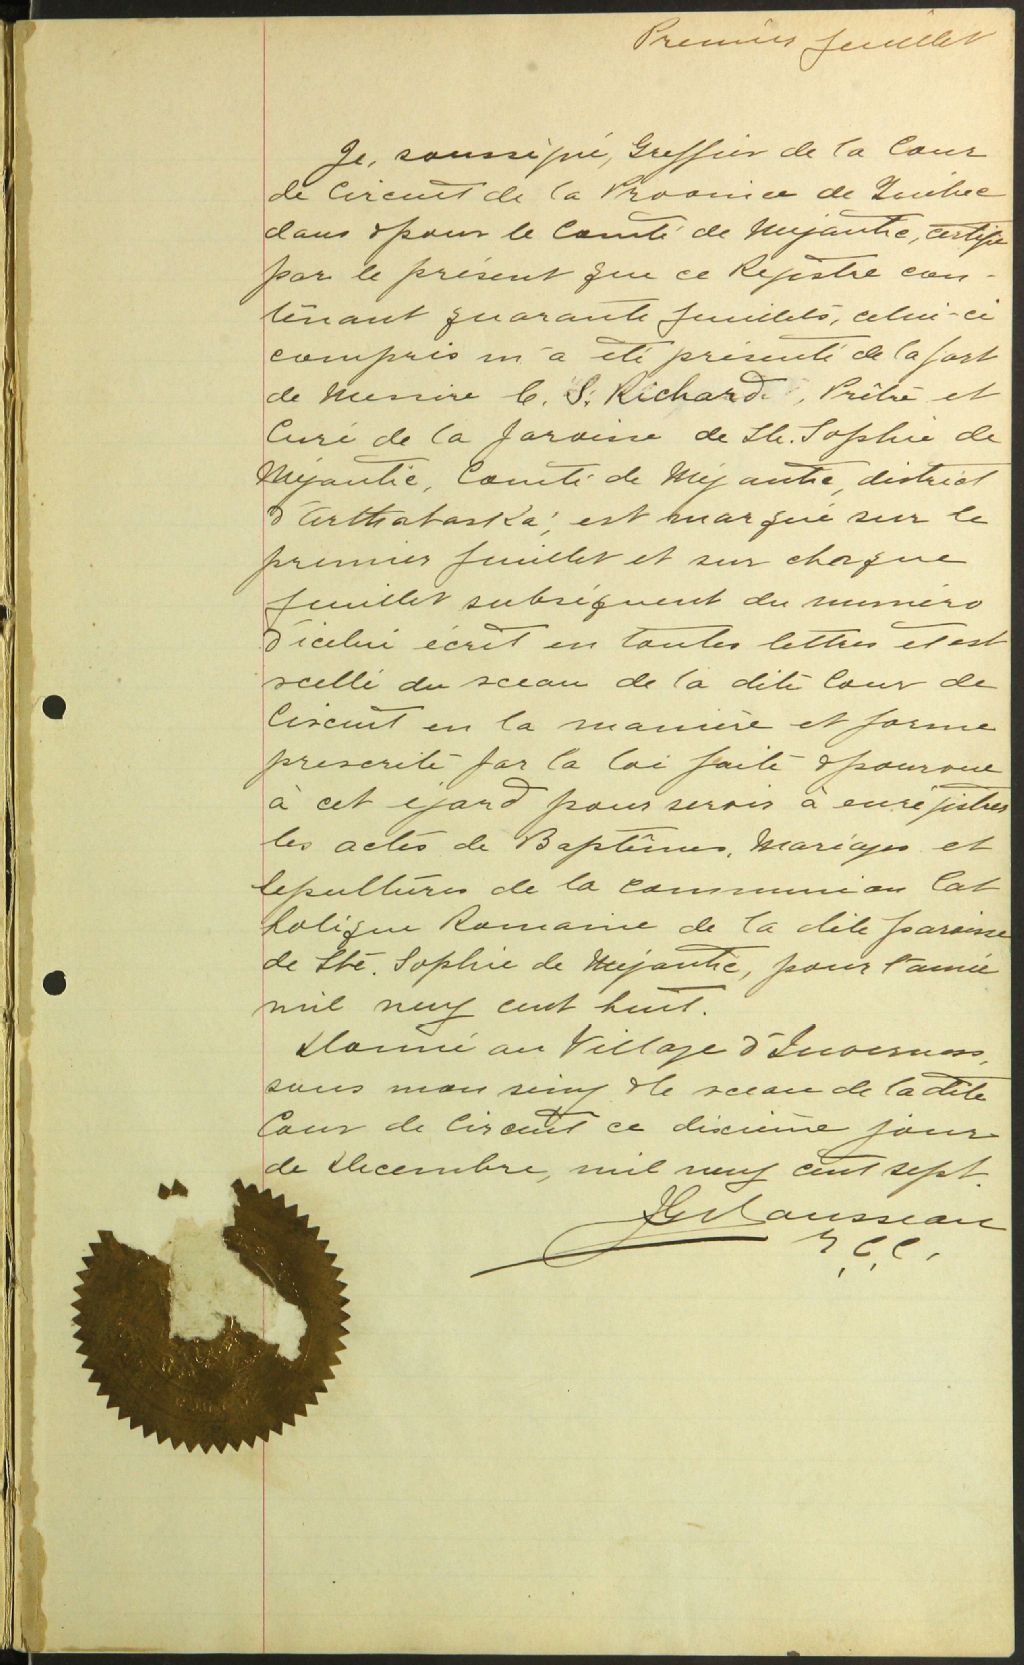 Premier feuillet
Je, soussigné, Greffier de la Cour
de Circuit de la Province de Québec
dans & pour le Comté de Mégantic, certifie
par le présent que ce Registre con-
tenant quarante feuillets, celui-ci
compris m'a été présenté de la part
de Messire C. S. Richard, Prêtre et
Curé de la Paroisse de Ste. Sophie de
Mégantic, Comté de Mégantic, district
d'Arthabaska, est marqué sur le
premier feuillet et sur chaque
feuillet subséquent du numéro
d'icelui écrit en toutes lettres et est
scellé du sceau de la dite Cour de
Circuit en la manière et forme
prescrite par la loi faite & pourvue
à cet égard pour servir à enrégistrer
les actes de Baptêmes, Mariages et
Sepultures de la communion Cat
holique Romaine de la dite paroisse
de Ste. Sophie de Mégantic, pour l'année
mil neuf cent huit.
Donné au Village d'Inverness,
sous mon seing & le sceau de la dite
Cour de Circuit ce dixième jour
de Decembre, mil neuf cent sept.
Rousseau
G. C. C.